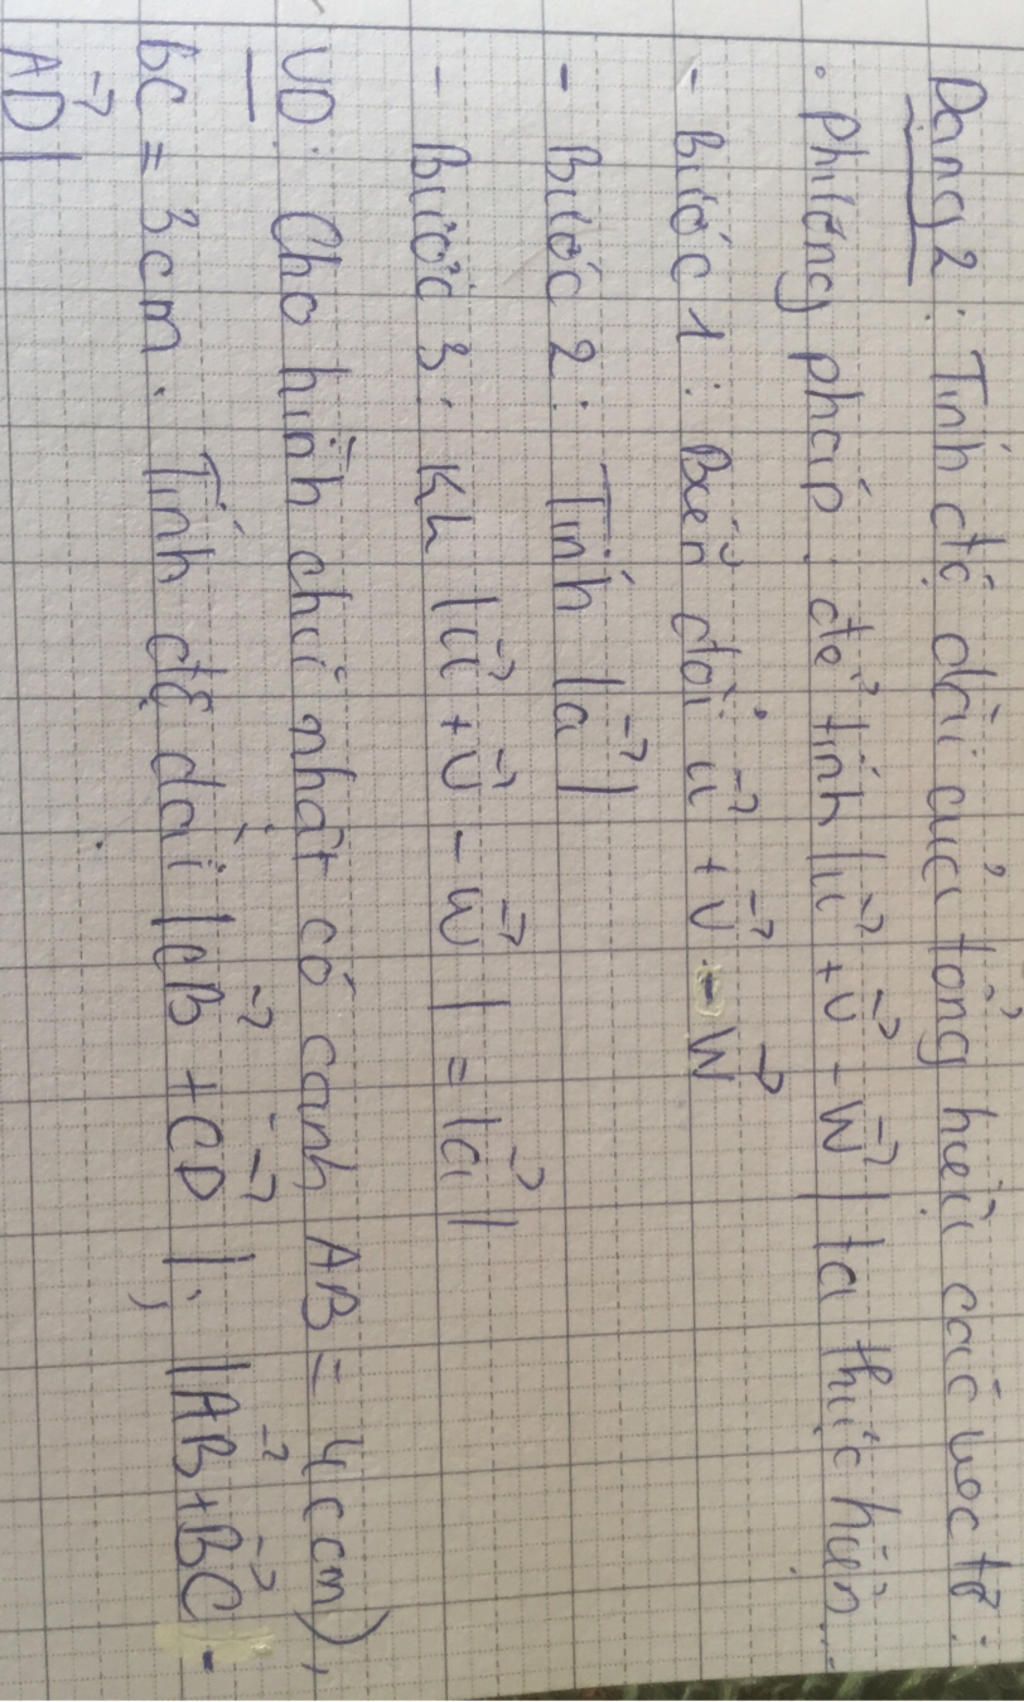 Dạng 2: Tính độ dài của tổng hiệu các vec tơ:
. Phương pháp: để tính |u⃗ + v⃗ - w⃗| ta thực hiện..
- bước 1: Biến đổi u⃗ + v⃗ - w⃗
- Bước 2: Tính |a⃗|
- Bước 3: KL |u⃗ + v⃗ - w⃗| = |a⃗|
VD: Cho hình chữ nhật có cạnh AB = 4(cm),
BC = 3cm. Tính độ dài |CB⃗ + CD⃗|; |AB⃗ + BC⃗ -
AD⃗|